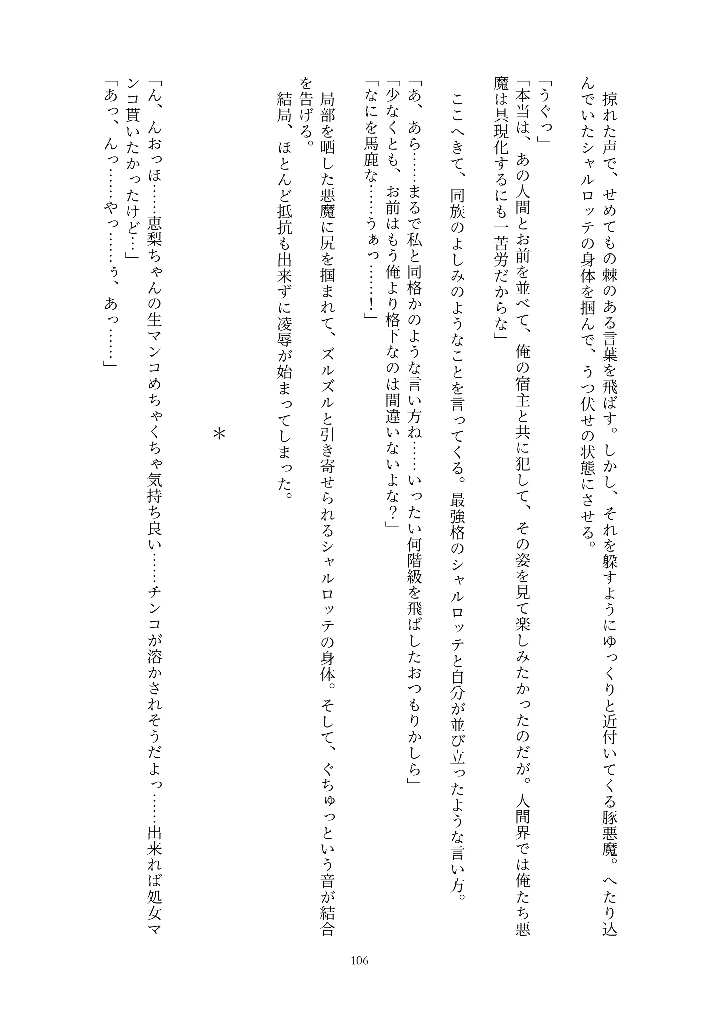 掠れた声で、せめてもの棘のある言葉を飛ばす。しかし、それを躱すようにゆっくりと近付いてくる豚悪魔。へたり込
んでいたシャルロッテの身体を掴んで、うつ伏せの状態にさせる。
「うぐっ」
「本当は、あの人間とお前を並べて、俺の宿主と共に犯して、その姿を見て楽しみたかったのだが。人間界では俺たち悪
魔は具現化するにも一苦労だからな」
ここへきて、同族のよしみのようなことを言ってくる。最強格のシャルロッテと自分が並び立ったような言い方。
「あ、あら……まるで私と同格かのような言い方ね……いったい何階級を飛ばしたおつもりかしら」
「少なくとも、お前はもう俺より格下なのは間違いないよな？」
「なにを馬鹿な……うぁっ……！」
局部を晒した悪魔に尻を掴まれて、ズルズルと引き寄せられるシャルロッテの身体。そして、ぐちゅっという音が結合
を告げる。
結局、ほとんど抵抗も出来ずに凌辱が始まってしまった。
＊
「ん、んおっほ……恵梨ちゃんの生マンコめちゃくちゃ気持ち良い……チンコが溶かされそうだよっ……出来れば処女マ
ンコ貰いたかったけど…」
「あっ、んっ……やっ……ぅ、あっ……」
106